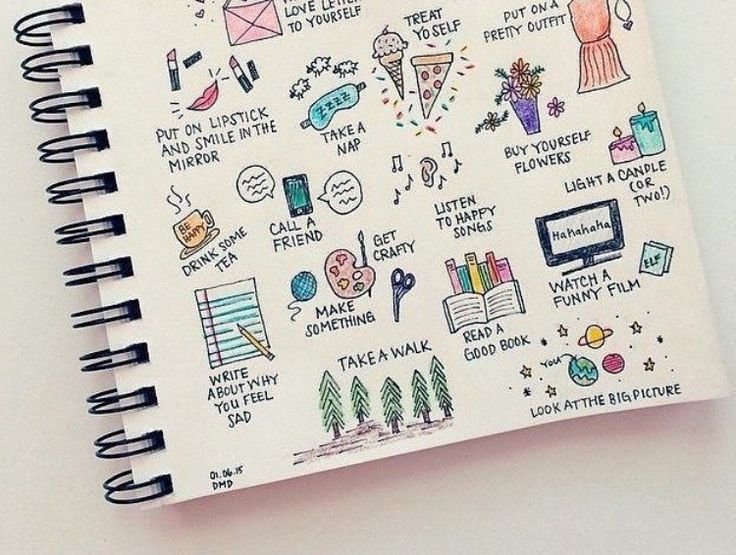 LOVE LETTER
TO YOURSELF
TREAT
YO SELF
PUT ON A
PRETTY OUTFIT
PUT ON LIPSTICK
AND SMILE IN THE
MIRROR
ZZZZ
TAKE A
NAP
BUY YOURSELF
FLOWERS
LIGHT A CANDLE
(OR
TWO!)
BE
HAPPY
DRINK SOME
TEA
CALL A
FRIEND
LISTEN
TO HAPPY
SONGS
Hahahaha
ELF
WATCH A
FUNNY FILM
GET
CRAFTY
MAKE
SOMETHING
READ A
GOOD BOOK
WRITE
ABOUT WHY
YOU FEEL
SAD
TAKE A WALK
YOU
LOOK AT THE BIG PICTURE
01.06.15
DMD